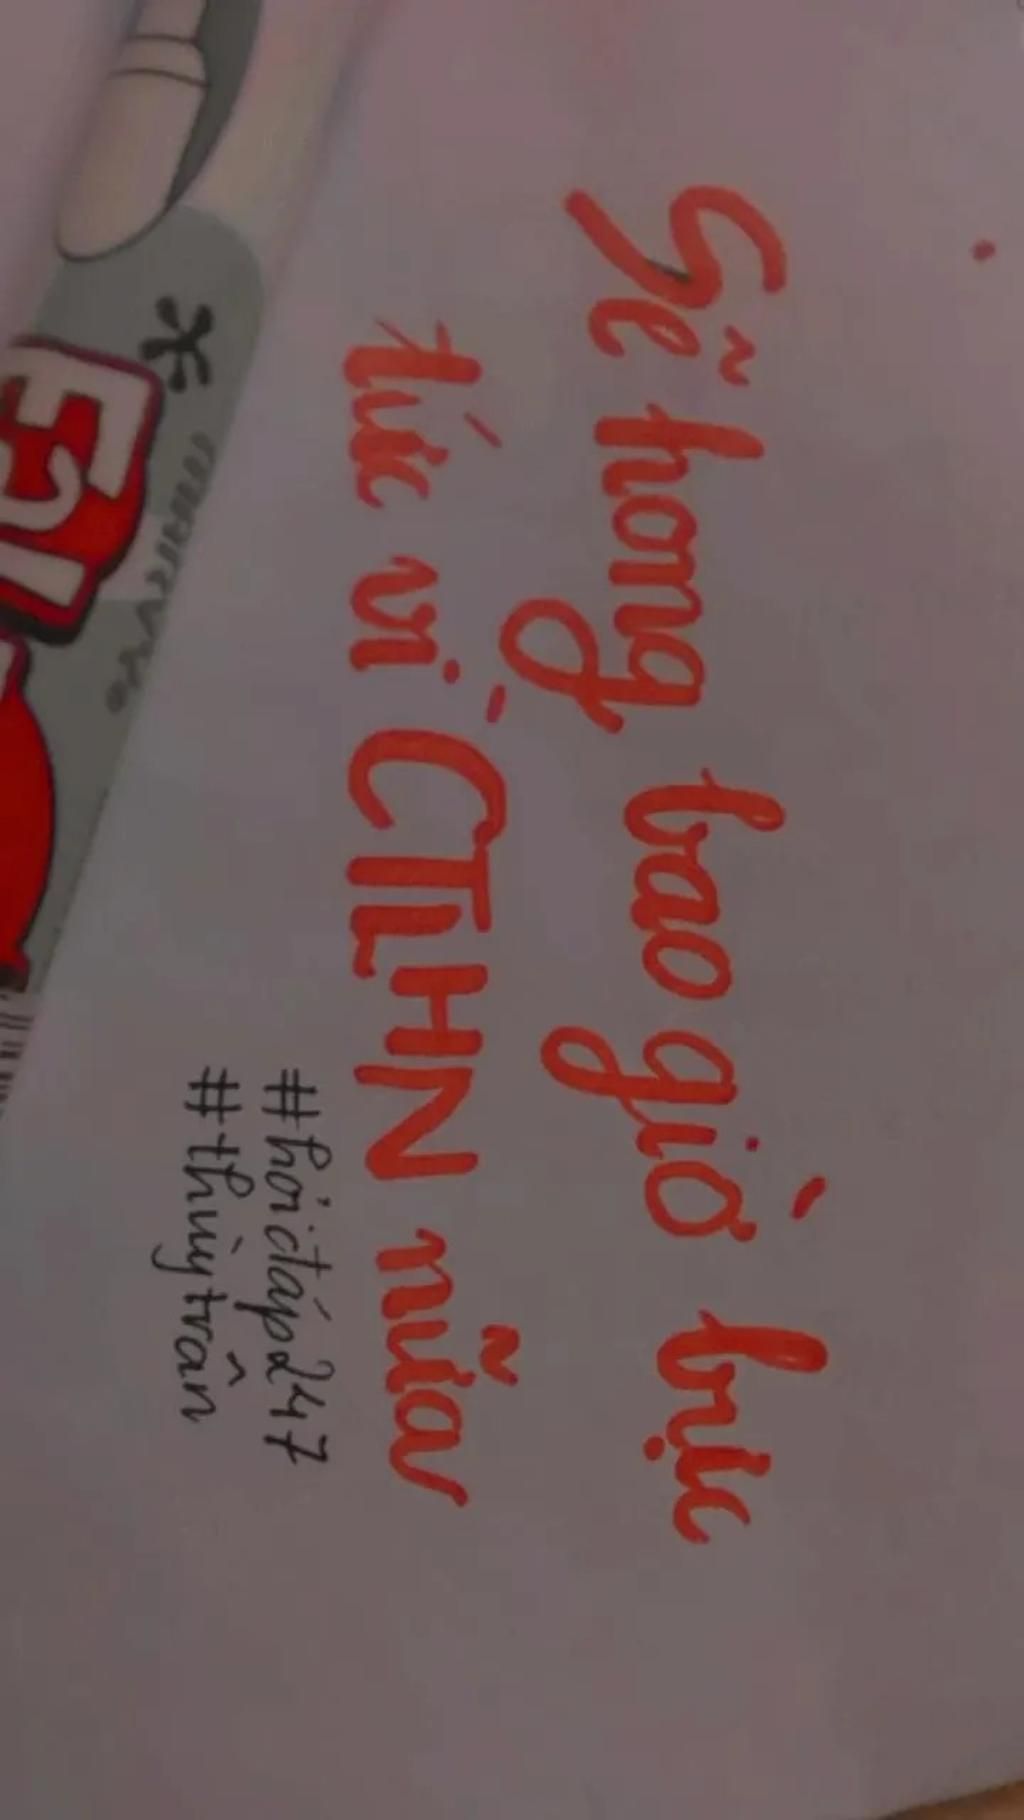 Sẽ hong bao giờ bực
tức vì CTLHN nữa
#hỏiđáp247
#thùytrân